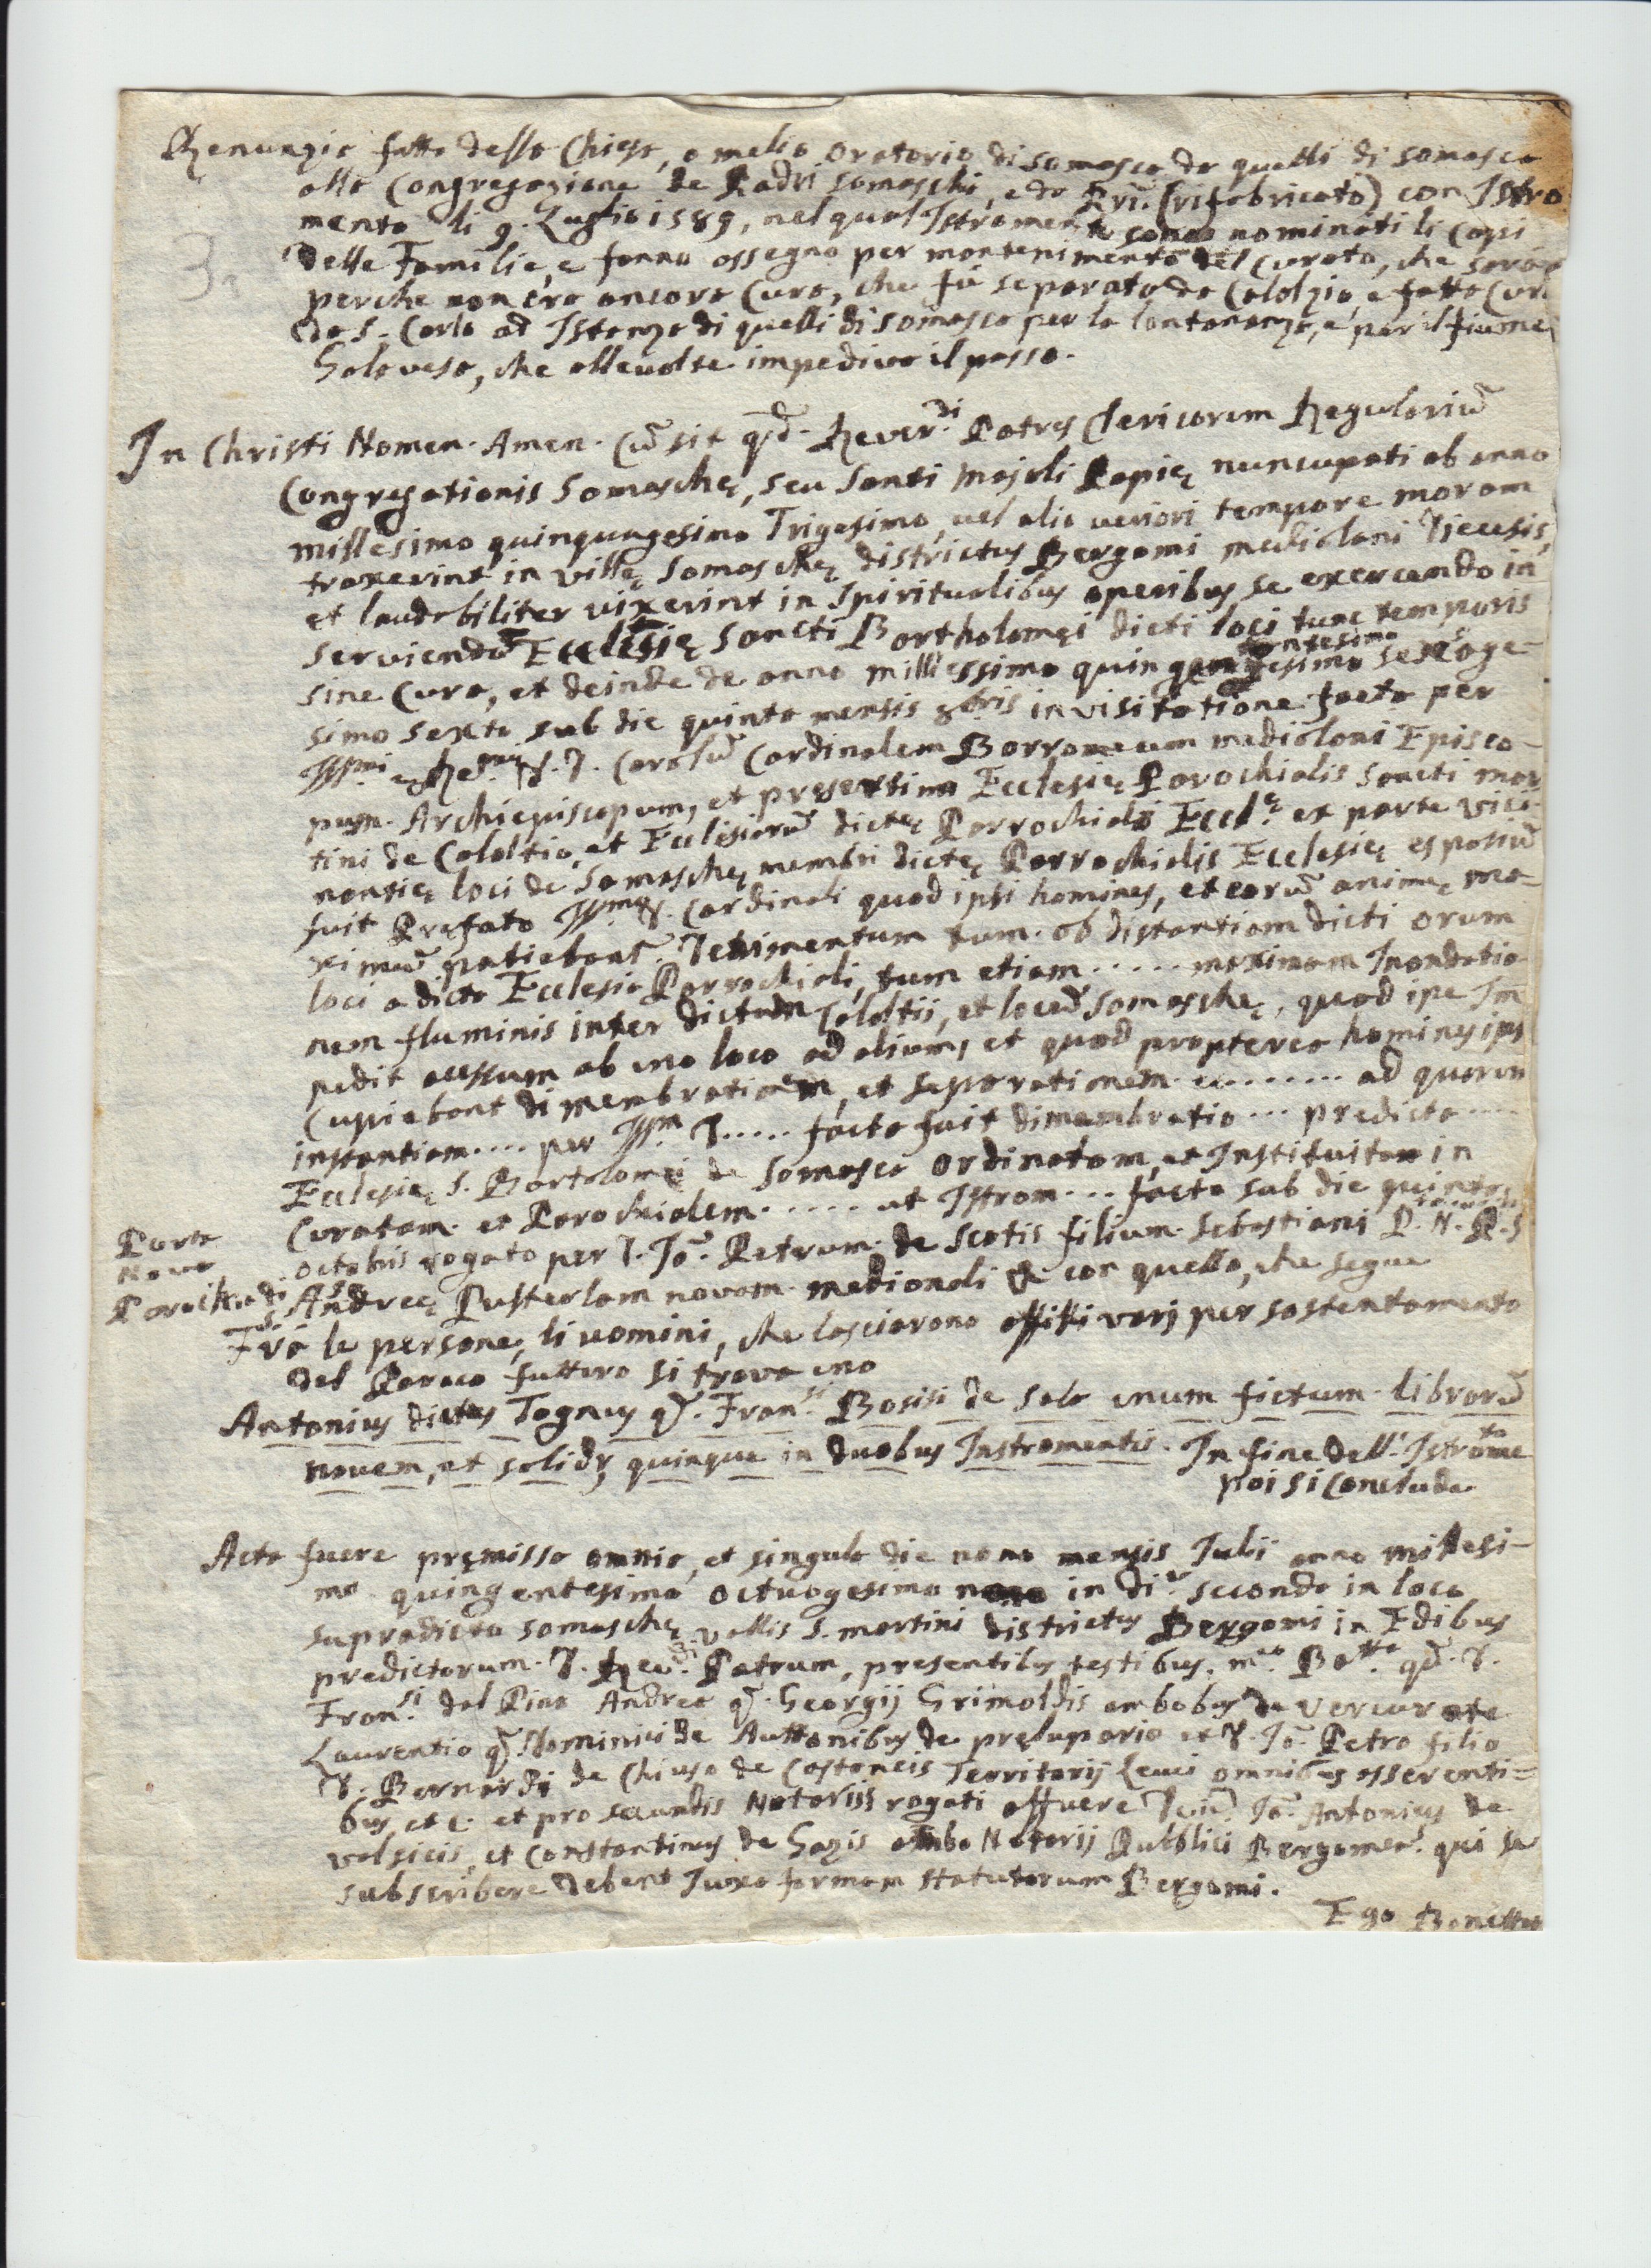 Renunzia fatta della Chiesa, o melio oratorio di somasca da quelli di somasca
alla Congregazione de Padri somaschi, e da Pri. (rifabricata) con Istro
mento li 9. Luglio 1589, nel qual Istromento sono nominati li Capi
3.
delle Familie, e fanno assegno per mantenimento del Curato, che sarà
perche non era ancora Cura, che fù separata da Calolzio, e fatta Cura
da S. Carlo ad Istanza di quelli di somasca per la lontananza, e per il fiume
Galavesa, che alle volte impediva il passo.
In Christi Nomen. Amen. Cũ sit qd. Rever.di Patres Clericorum Regulariũ
Congregationis Somaschę, seu Santi Majoli Papię nuncupati ab anno
millesimo quinquagesimo Trigesimo, vel alio veriori tempore moram
traxerint in villę Somaschę districtus Bergomi mediolani Diecesis,
et laudabiliter vixerint in Spiritualibus operibus se exercendo in
serviendũ Ecclesię Sancti Bartholomęi dicti loci tunc temporis
sine Cura, et deinde de anno millessimo quingentesimo sexage-
simo sexto sub die quinto mensis 8bris in visitatione facta per
Issmi et Res.mi D. D. Carolũ Cardinalem Borromeum mediolani Episco-
pum. Archiepiscopum, et presertim Ecclesię Parochialis Sancti mar
tini de Caloltio, et Ecclesiarũ dictę Parrochialis Eccl.ę ex parte vici-
nantię loci de Somaschę membri dictę Parrochialis Ecclesię expositũ
fuit Prefato Issmo D. Cardinali quod ipsi homines, et eorũ animę ma-
ximũ patiebant.r Detrimentum tum. ob distantiam dicti orum
loci a dicta Ecclesia Parrochiali, tum etiam ..... maximam Inondatio
nem fluminis inter dictum Caloltii, et locũ Somaschę, quod ipe Im
pedit accessum ab uno loco ad alium, et quod propterea homines ipsi
Cupiebant dimembrationem, et separationem e ........ ad quorum
instantiam .... per Issm D ..... facta fuit dimembratio ... predicta ....
Ecclesię S. Bartolomei de Somasca ordinatam, et Instituitam in
Curatam. et Parochialem ...... ut Istrom ... facto sub die quinto
octobris rogato per D. Jo. Petrum. de Scotis filium. Sebastiani P. N. P. S
Porta
Nova
Parochia di
S.
S. Andreę Pusterlam novam. mediolani & con quello, che segue
Frà le persone, li uomini, che lasciarono affitti varj per sostentamento
del Paroco futturo si trova uno
Antonius dictus Tognus q. Fran.si Bosisi de Sala unum fictum. librarũ
novem, et solidos quinque in duobus Instromentis. In fine dell' Istrome.to
poi si Conclude
Acta fuere pręmissa omnia, et singula die nono mensis Julii anno millesi-
mo. quingentesimo octuagesimo nono in di.e secunda in loco
supradicto somaschę vallis S. martini districtus Bergomi in Edibus
predictorum. D. Rev.di Patrum, presentibus testibus. m.ro Ba.tta qd. D.
Fran.si dal Pino Andrea q. Georgij Grimoldis ambobus de Vercurate
Laurentio q. Dominici de Auttonibus de pręluporio et D. Jo. Petro filio
D. Bernardi de Chiuso de Castaneis Territorij Leuci omnibus asserenti=
bus, et c. et pro secundis Notariis rogati affuere D. Jo. Antonius de
valsicis, et Constantinus de Gazis ambo Notarij Pubblici Bergomen. qui se
subscribere debent Juxa formam statutorum Bergomi.
Ego Bonettus